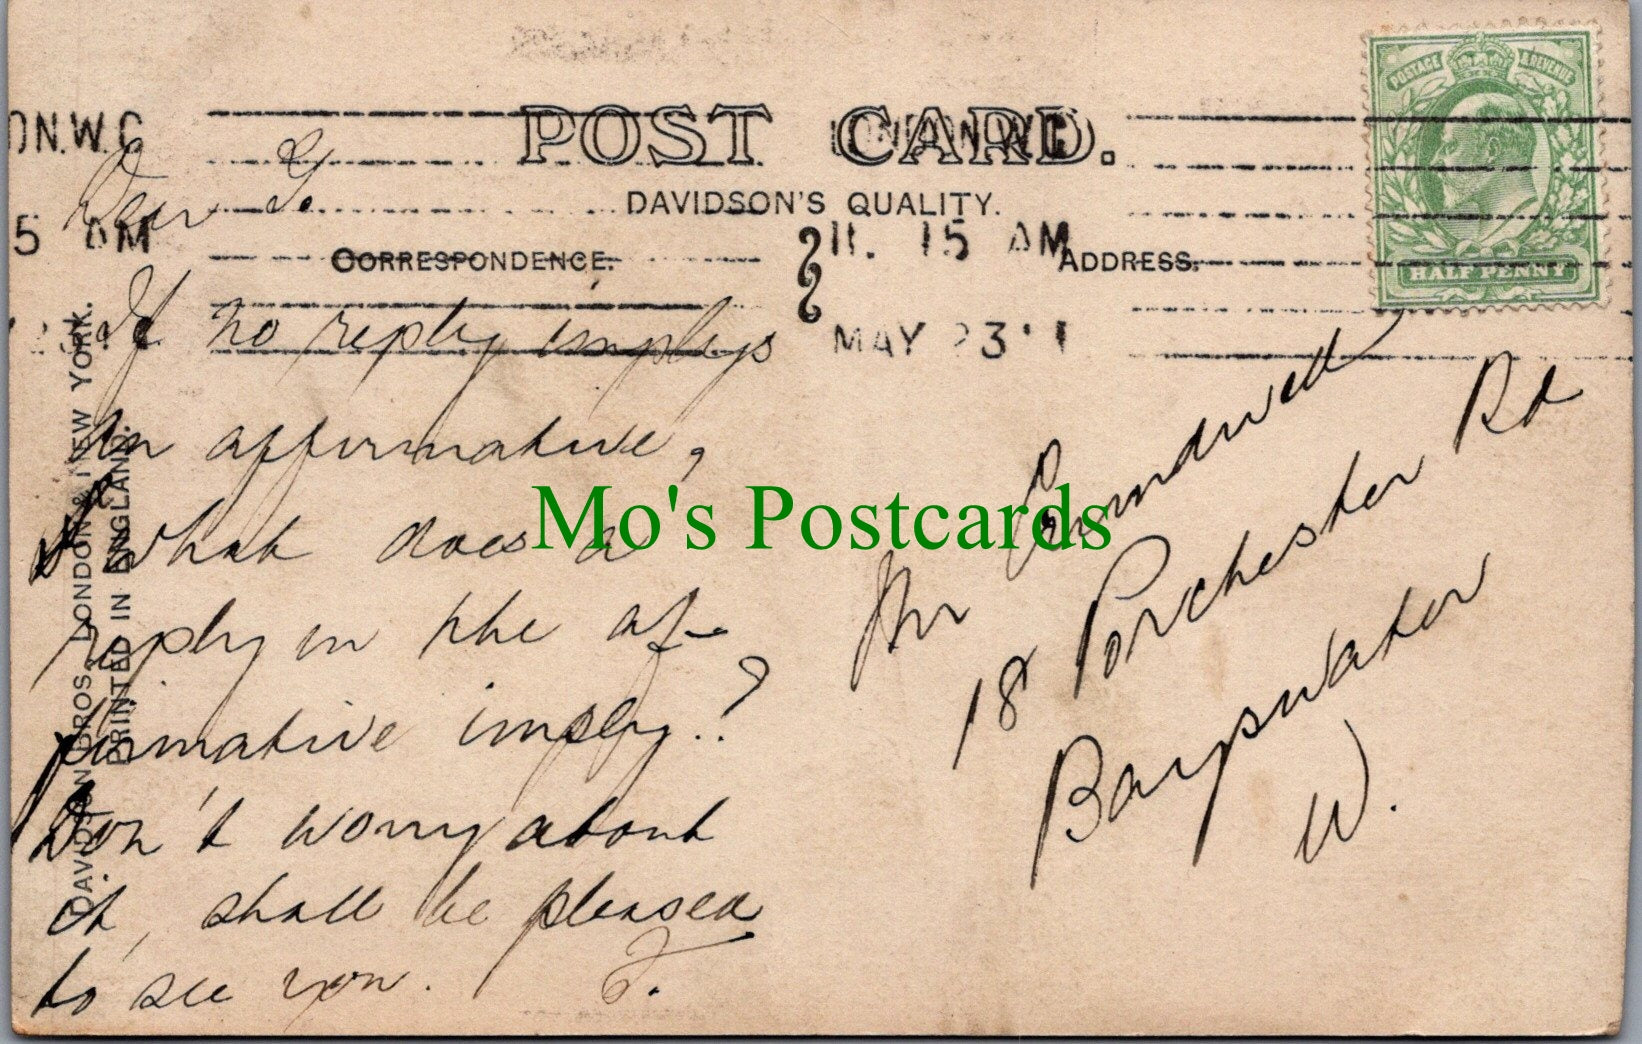 POST CARD.
DAVIDSON'S QUALITY.
CORRESPONDENCE.
ADDRESS.
POSTAGE & REVENUE
HALF PENNY
ON.W.C
LONDON.W.C
5 AM
11. 15 AM
MAY 23 11
Dear G.
If no reply implys
an affirmative,
what does a
reply in the af-
firmative imply.?
Don't worry about
it, shall be pleased
to see you. F.
Mr
18 Porchester Rd
Bayswater
W.
DAVIDSON BROS. LONDON & NEW YORK.
PRINTED IN ENGLAND.
Mo's Postcards